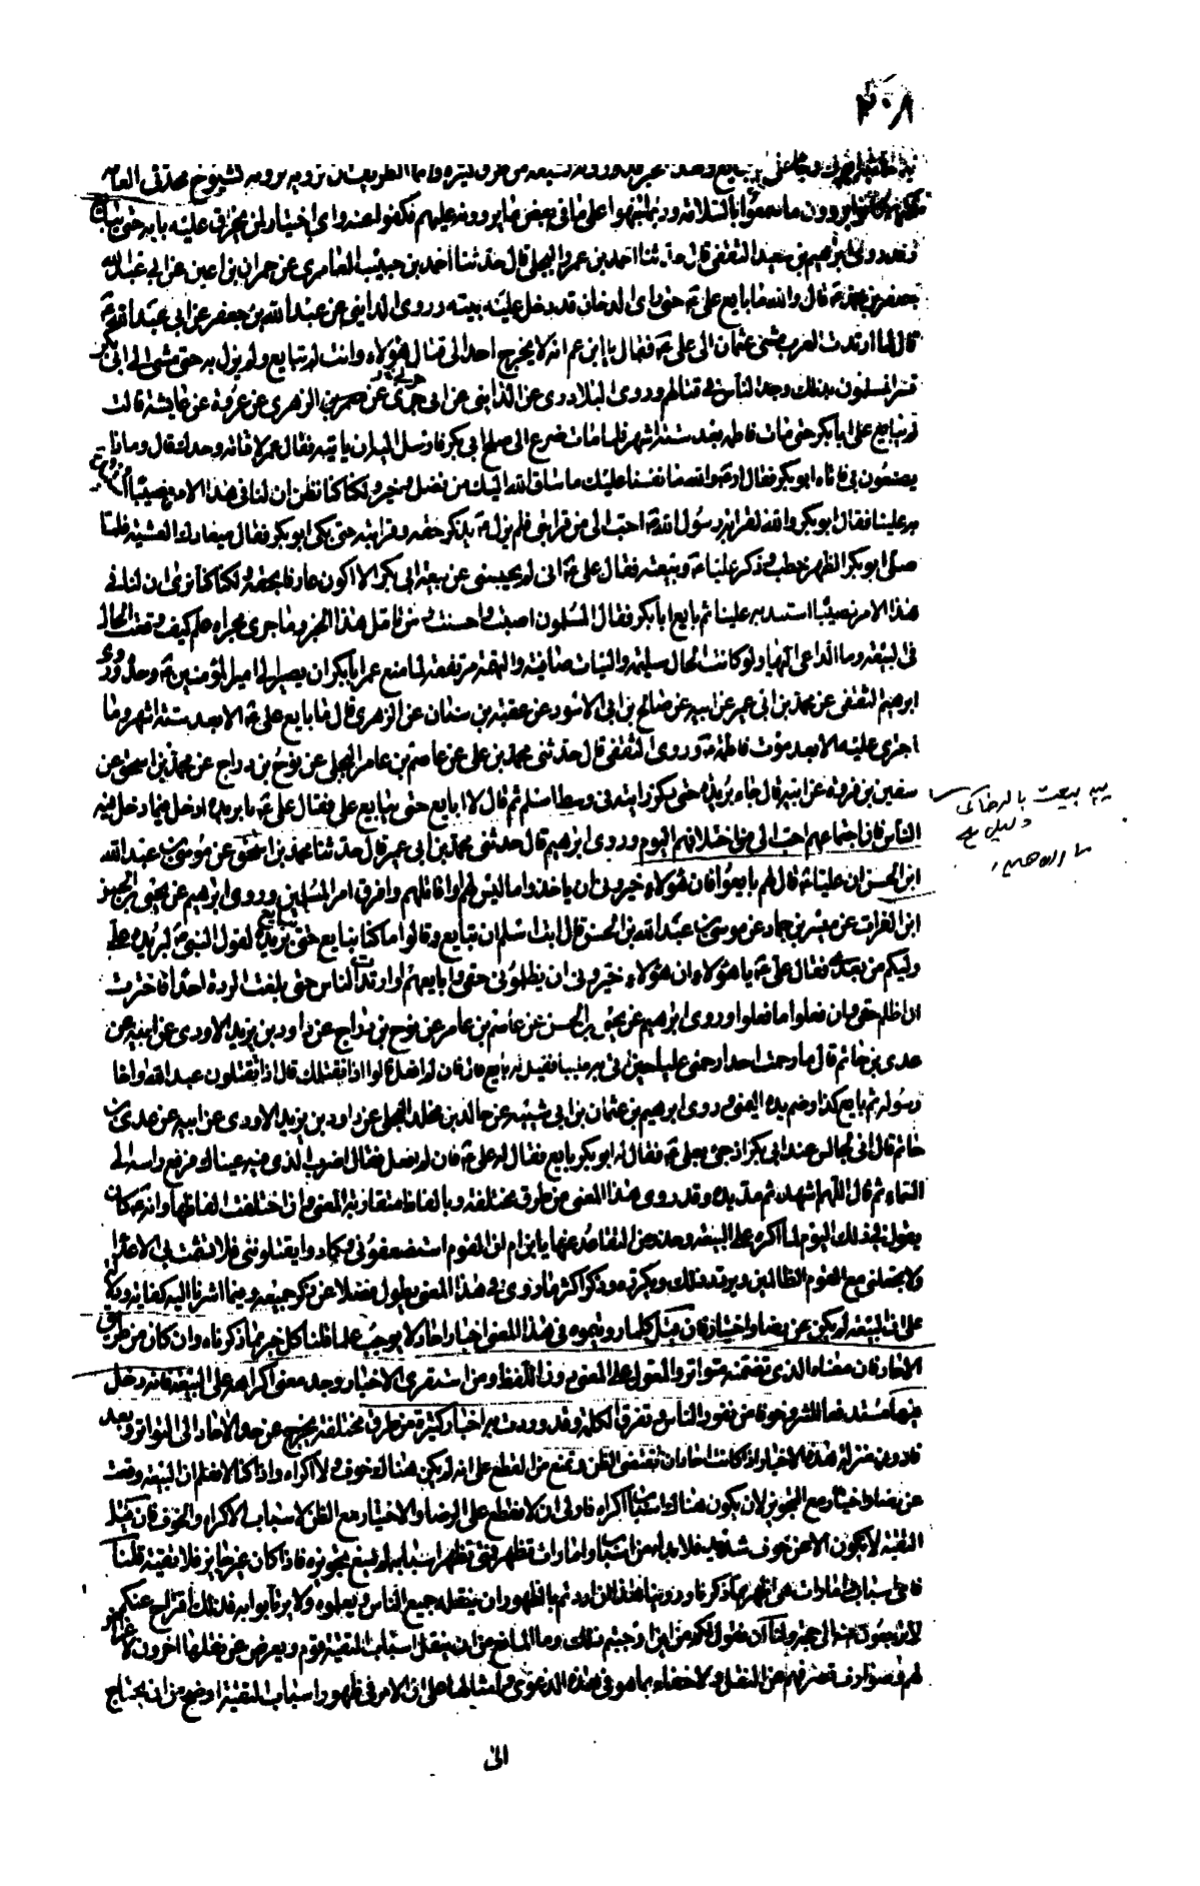 ٢٠٨
فكفوا عنه وأي اختيار لمن يحرق عليه بابه حتى يبايع
وقد روى إبراهيم بن سعيد الثقفي قال حدثنا احمد بن عمرو البجلي قال حدثنا احمد بن حبيب العامري عن حمران بن اعين عن ابي عبد الله
جعفر بن محمد ع قال والله ما بايع علي ع حتى راى الدخان قد دخل عليه بيته وروى المدايني عن عبد الله بن جعفر عن ابي عون
قال لما ارتدت العرب مشى عثمان الى علي ع فقال يا ابن عم انه لا يخرج احد الى قتال هؤلاء وانت لم تبايع ولم يزل به حتى مشى الى ابي بكر
فسر المسلمون بذلك وجد الناس في قتالهم وروى البلاذري عن المدايني عن ابي جزي عن معمر عن الزهري عن عروة عن عايشة قالت
لم يبايع علي ابا بكر حتى ماتت فاطمة بعد ستة اشهر فلما ماتت ضرع الى صلح ابي بكر فارسل اليه ان ياتيه فقال عمر لا تاته وحدك قال وماذا
يصنعون بي فاتاه ابو بكر فقال له ع والله ما نفسنا عليك ما ساق الله اليك من فضل وخير ولكنا كنا نظن ان لنا في هذا الامر نصيبا استبد
به علينا فقال ابو بكر والله لقرابة رسول الله احب الي من قرابتي فلم يزل ع يذكر حقه وقرابته حتى بكى ابو بكر فقال ميعادك العشية فلما
صلى ابو بكر الظهر خطب وذكر عليا ع وبيعته فقال علي ع اني لم يحبسني عن بيعة ابي بكر الا اكون عارفا بحقه ولكنا كنا نرى ان لنا في
هذا الامر نصيبا استبد به علينا ثم بايع ابا بكر فقال المسلمون اصبت واحسنت ومن تامل هذا الخبر وما جرى مجراه علم كيف وقعت الحال
في البيعة وما الداعي اليها ولو كانت الحال سليمة والنيات صافية والتهمة مرتفعة لما منع عمر ابا بكر ان يصير الى امير المؤمنين ع وحده وروى
ابرهيم الثقفي عن محمد بن ابي عمير عن ابيه عن صالح بن ابي الاسود عن عقبة بن سنان عن الزهري قال ما بايع علي ع الا بعد ستة اشهر وما
اجترى عليه الا بعد موت فاطمة ع وروى الثقفي قال حدثني محمد بن علي عن عاصم بن عامر البجلي عن نوح بن دراج عن محمد بن اسحق عن
سفين بن فروة عن ابيه قال جاء بريدة حتى ركز رايته في وسط اسلم ثم قال لا ابايع حتى يبايع علي فقال علي ع يا بريدة ادخل فيما دخل فيه
الناس فان اجتماعهم احب الي من اختلافهم اليوم وروى ابرهيم قال حدثني محمد بن ابي عمير قال حدثنا محمد بن اسحق عن موسى بن عبد الله
ابن الحسن ان عليا ع قال لهم بايعوا فان هؤلاء خيروني ان ياخذوا ما ليس لهم او اقاتلهم وافرق امر المسلمين وروى ابرهيم عن يحيى بن الحسن
ابن الفرات عن ميسر بن حماد عن موسى بن عبد الله بن الحسن قال ابت اسلم ان تبايع وقالوا ما كنا نبايع حتى يبايع بريدة لقول النبي ع لبريدة علي
وليكم من بعدي فقال علي ع يا هؤلاء ان هؤلاء خيروني ان يظلموني حقي وابايعهم او ارتدت الناس حتى بلغت الردة احدا فاخترت
ان اظلم حقي وان فعلوا ما فعلوا وروى ابرهيم عن يحيى بن الحسن عن عاصم بن عامر عن نوح بن دراج عن داود بن يزيد الاودي عن ابيه عن
عدي بن حاتم قال ما رحمت احدا رحمتي عليا حين اتي به ملببا فقيل له بايع قال فان لم افعل قالوا اذا نقتلك قال اذا تقتلون عبد الله واخا
رسوله ثم بايع كذا وضم يده اليمنى وروى ابرهيم بن عثمان بن ابي شيبة عن خالد بن مخلد البجلي عن داود بن يزيد الاودي عن ابيه عن عدي بن
حاتم قال اني لجالس عند ابي بكر اذ جيء بعلي ع فقال له ابو بكر بايع فقال له علي ع فان لم افعل فقال اضرب الذي فيه عيناك فرفع راسه الى
السماء ثم قال اللهم اشهد ثم مد يده وقد روي هذا المعنى من طرق مختلفة وبالفاظ متقاربة المعنى وان اختلفت لفاظها وانه ع كان
يقول في ذلك اليوم لما اكره على البيعة وحذر من التقاعد عنها يا ابن ام ان القوم استضعفوني وكادوا يقتلونني فلا تشمت بي الاعداء
ولا تجعلني مع القوم الظالمين ويردد ذلك ويكرره وذكر اكثر ما روي في هذا المعنى يطول فضلا عن ذكر جميعه وفيما اشرنا اليه كفاية ودلالة
على ان البيعة لم تكن عن رضا واختيار فان قيل كلما رويتموه في هذا المعنى اخبار احاد لا يوجب علما قلنا كل خبر مما ذكرناه وان كان من طريق
الاحاد فان معناه الذي تضمنه متواتر والمعول على المعنى دون اللفظ ومن استقرى الاخبار وجد معنى اكراهه على البيعة وانه دخل
فيها مستدفعا للشر وخوفا من نفور الناس وتفرق الكلمة وقد وردت به اخبار كثيرة من طرق مختلفة يخرج عن حد الاحاد الى التواتر وبعد
فادون منزلة هذه الاخبار اذا كانت احادا ان تقتضي الظن وتمنع من القطع على انه لم يكن هناك خوف ولا اكراه واذا كنا لا نعلم ان البيعة وقعت
عن رضا واختيار مع التجويز لان يكون هناك اسباب اكراه فاولى ان لا نقطع على الرضا والاختيار مع الظن لاسباب الاكراه والخوف فان قيل
التقية لا تكون الا عن خوف شديد فلا بد له من اسباب وامارات تظهر فمتى تظهر اسبابه لم يسع تجويزه فاذا كان غير جايز فلا تقية قلنا
فاي اسباب وامارات هي اظهر مما ذكرناه ورويناه هذا ان اردتم بالظهور ان ينقله جميع الناس ويعلموه ولا يرتابوا به فذلك اقتراح عنكم
لا ترجعون فيه الى حجة ولنا ان نقول لكم من اين اوجبتم ذلك وما المانع من ان ينقل اسباب التقية قوم ويعرض عن نقلها اخرون لاغراض
لهم وصوارف تصرفهم عن النقل ولا خفاء بما هو في هذه الدعوى وامثالها على ان الامر في ظهور اسباب التقية اوضح من ان يحتاج
الى